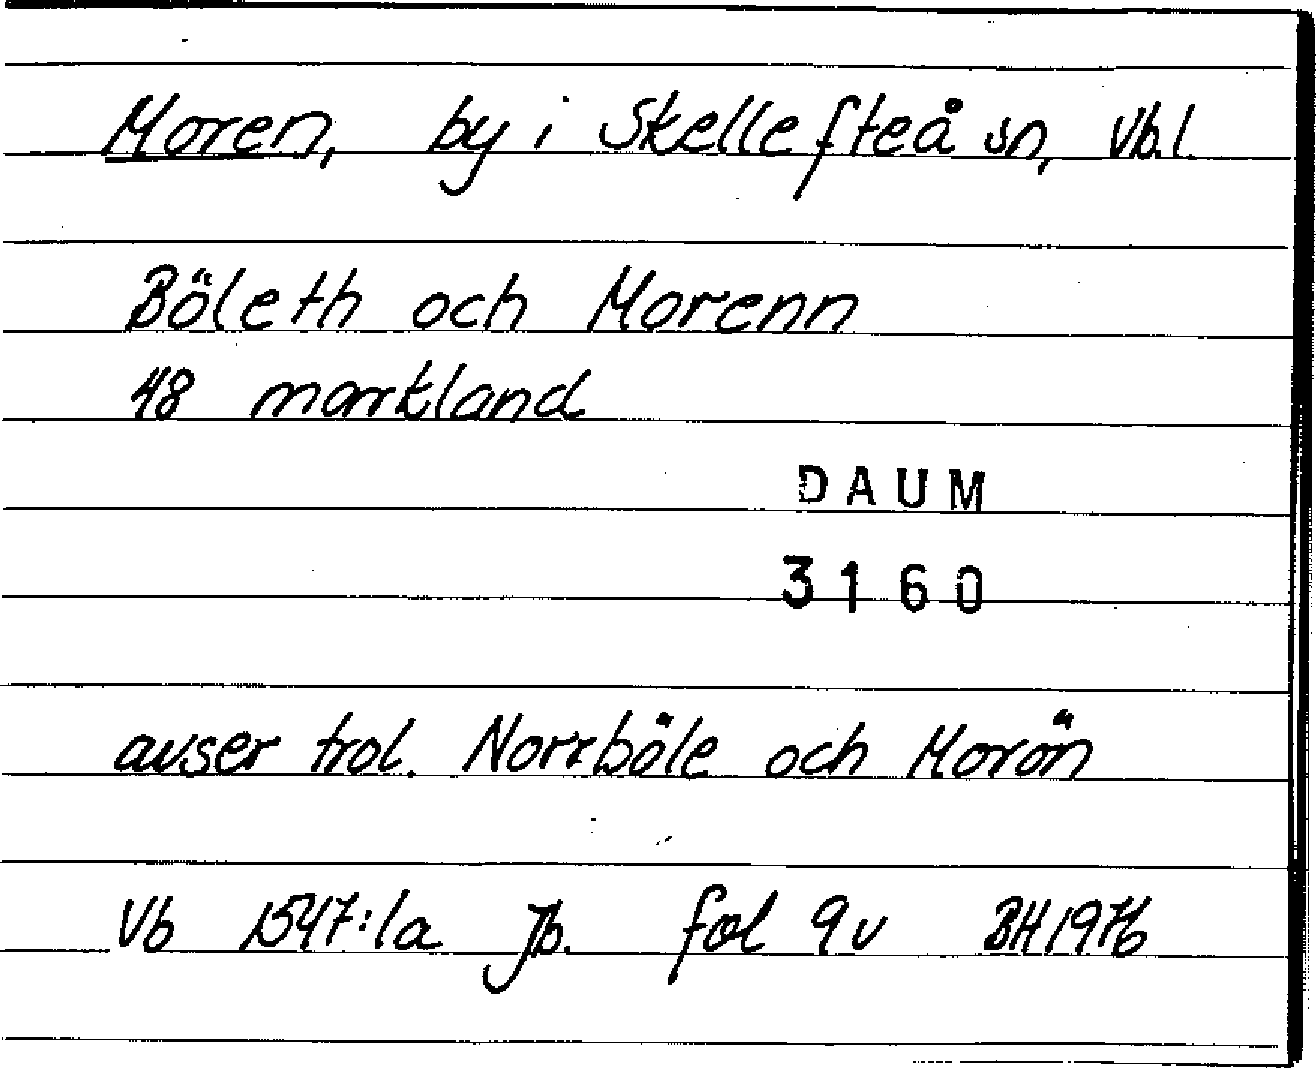 Moren, by i Skellefteå sn, Vb.l.
Böleth och Morenn
48 markland
DAUM
3160
avser trol. Norrböle och Morön
Vb 1547:1a Jb. fol 9v BH 1976